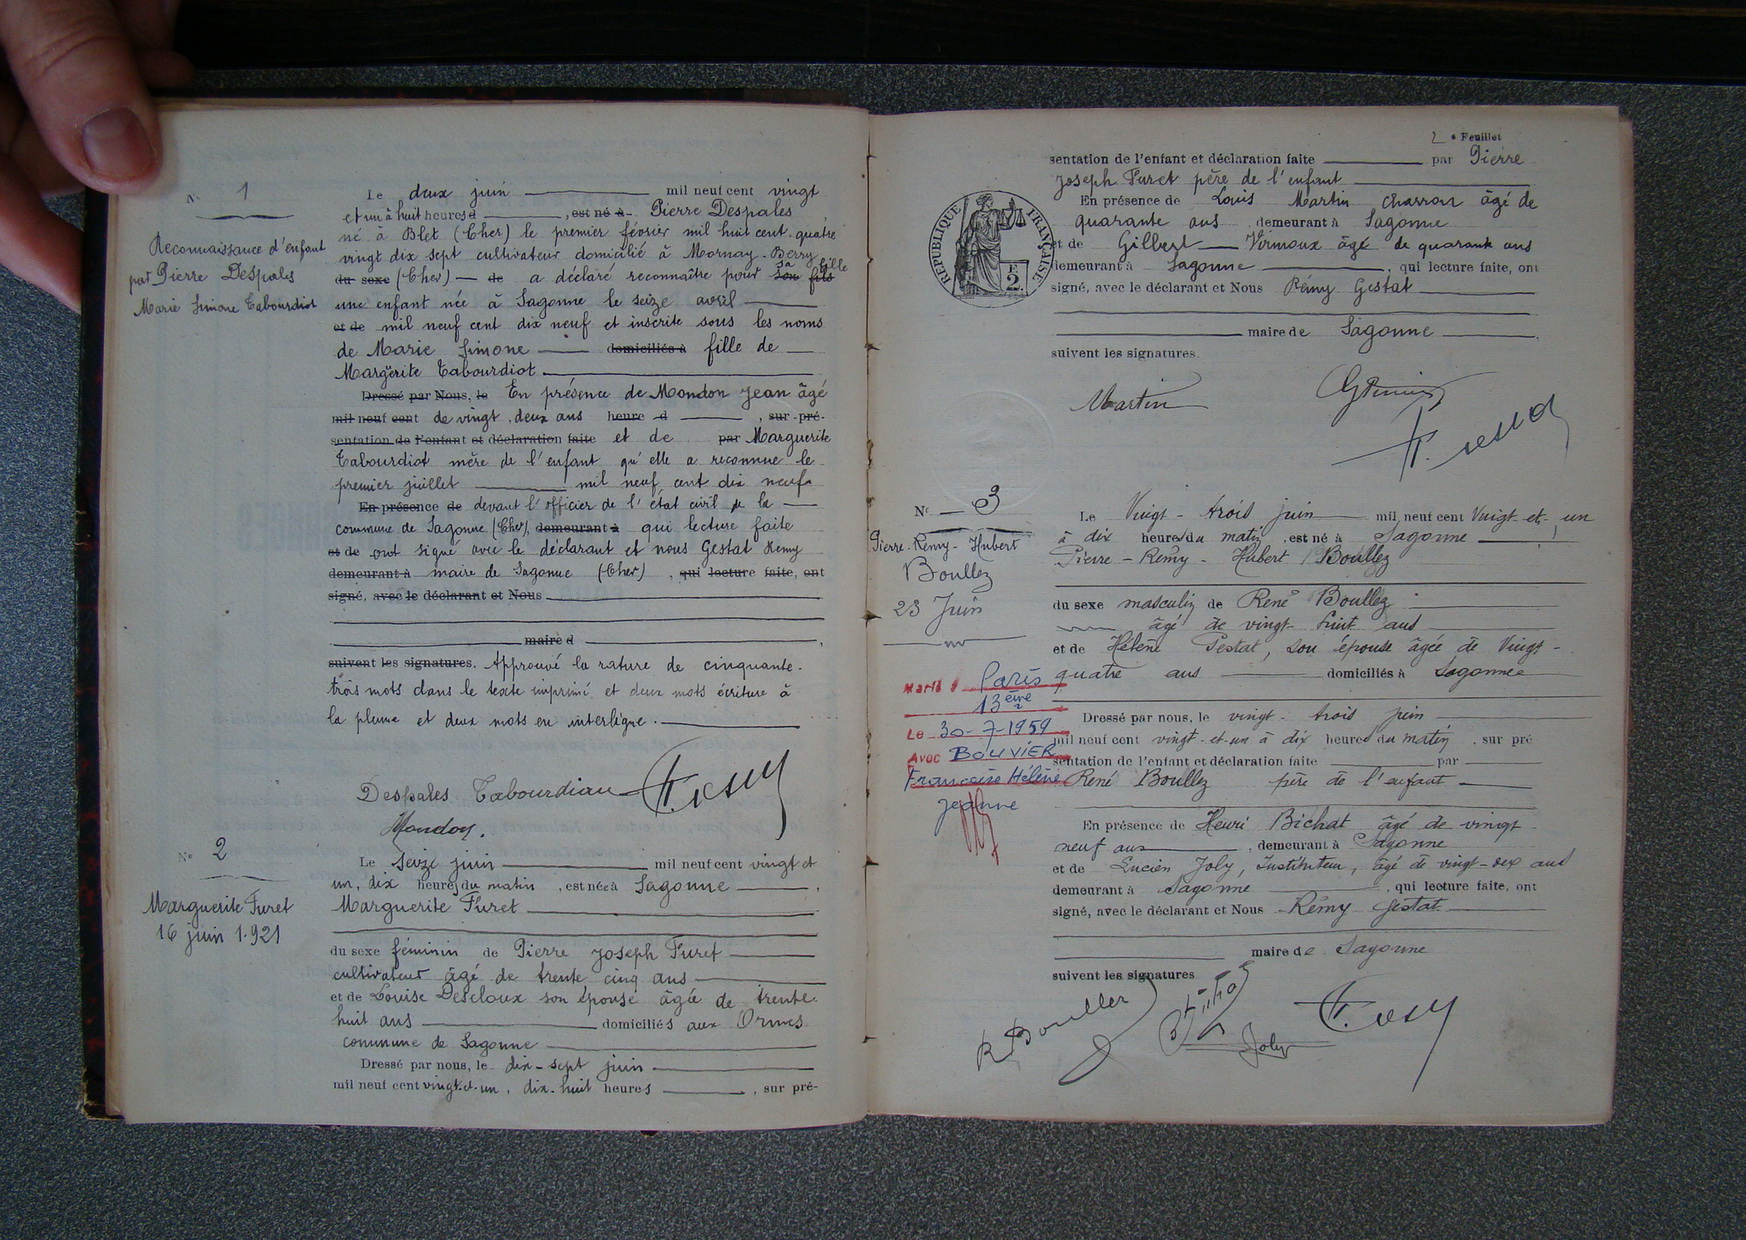 N° 1
Reconnaissance d'enfant
par Pierre Despales
Marie Simone Tabourdiot
Le deux juin mil neuf cent vingt
et un à huit heures d , est né à Pierre Despales
né à Blet (Cher) le premier février mil huit cent quatre
vingt dix sept cultivateur domicilié à Mornay-Berry
du sexe (Cher) de a déclaré reconnaître pour son fils sa fille
une enfant née à Sagonne le seize avril
et de mil neuf cent dix neuf et inscrite sous les noms
de Marie Simone domiciliés à fille de
Margerite Tabourdiot
Dressé par Nous, le En présence de Mondon Jean âgé
mil neuf cent de vingt deux ans heure d , sur pré-
sentation de l'enfant et déclaration faite et de par Marguerite
Tabourdiot mère de l'enfant qu'elle a reconnue le
premier juillet mil neuf cent dix neuf
En présence de devant l'officier de l'état civil de la
commune de Sagonne (Cher), demeurant à qui lecture faite
et de ont signé avec le déclarant et nous Gestat Remy
demeurant à maire de Sagonne (Cher) , qui lecture faite, ont
signé, avec le déclarant et Nous
maire d ,
suivent les signatures. Approuvé la rature de cinquante-
trois mots dans le texte imprimé et deux mots écriture à
la plume et deux mots en interligne.
Despales Tabourdiau
Mondon.
N° 2
Marguerite Furet
16 juin 1921
Le Seize juin mil neuf cent vingt et
un, dix heures du matin , est née à Sagonne ,
Marguerite Furet
du sexe féminin de Pierre Joseph Furet
cultivateur âgé de trente cinq ans
et de Louise Descloux son épouse âgée de trente
huit ans domiciliés aux Ormes
commune de Sagonne
Dressé par nous, le dix-sept juin
mil neuf cent vingt-et-un, dix-huit heures , sur pré-
2 e Feuillet
sentation de l'enfant et déclaration faite par Pierre
Joseph Furet père de l'enfant
En présence de Louis Martin charron âgé de
quarante ans , demeurant à Sagonne
et de Gilbert Virmoux âgé de quarante ans
demeurant à Sagonne , qui lecture faite, ont
signé, avec le déclarant et Nous Rémy Gestat
maire de Sagonne
suivent les signatures.
RÉPUBLIQUE FRANÇAISE
F.
2
Martin
N° 3
Pierre-Remy-Hubert
Boullez
23 Juin
Marié à Paris
13ème
Le 30-7-1959
Avec BOUVIER
Françoise Hélène
Jeanne
Le Vingt-trois juin mil neuf cent Vingt-et-un
à dix heures du matin , est né à Sagonne ,
Pierre-Remy-Hubert Boullez
du sexe masculin de René Boullez
âgé de vingt-huit ans
et de Hélène Gestat, son épouse âgée de Vingt-
quatre ans domiciliés à Sagonne
Dressé par nous, le vingt-trois juin
mil neuf cent vingt-et-un à dix heures du matin , sur pré
sentation de l'enfant et déclaration faite par
René Boullez père de l'enfant
En présence de Henri Bichat âgé de vingt
neuf ans , demeurant à Sagonne
et de Lucien Joly, Instituteur, âgé de vingt-six ans
demeurant à Sagonne , qui lecture faite, ont
signé, avec le déclarant et Nous Rémy Gestat
maire de Sagonne
suivent les signatures
R Boullez
Joly